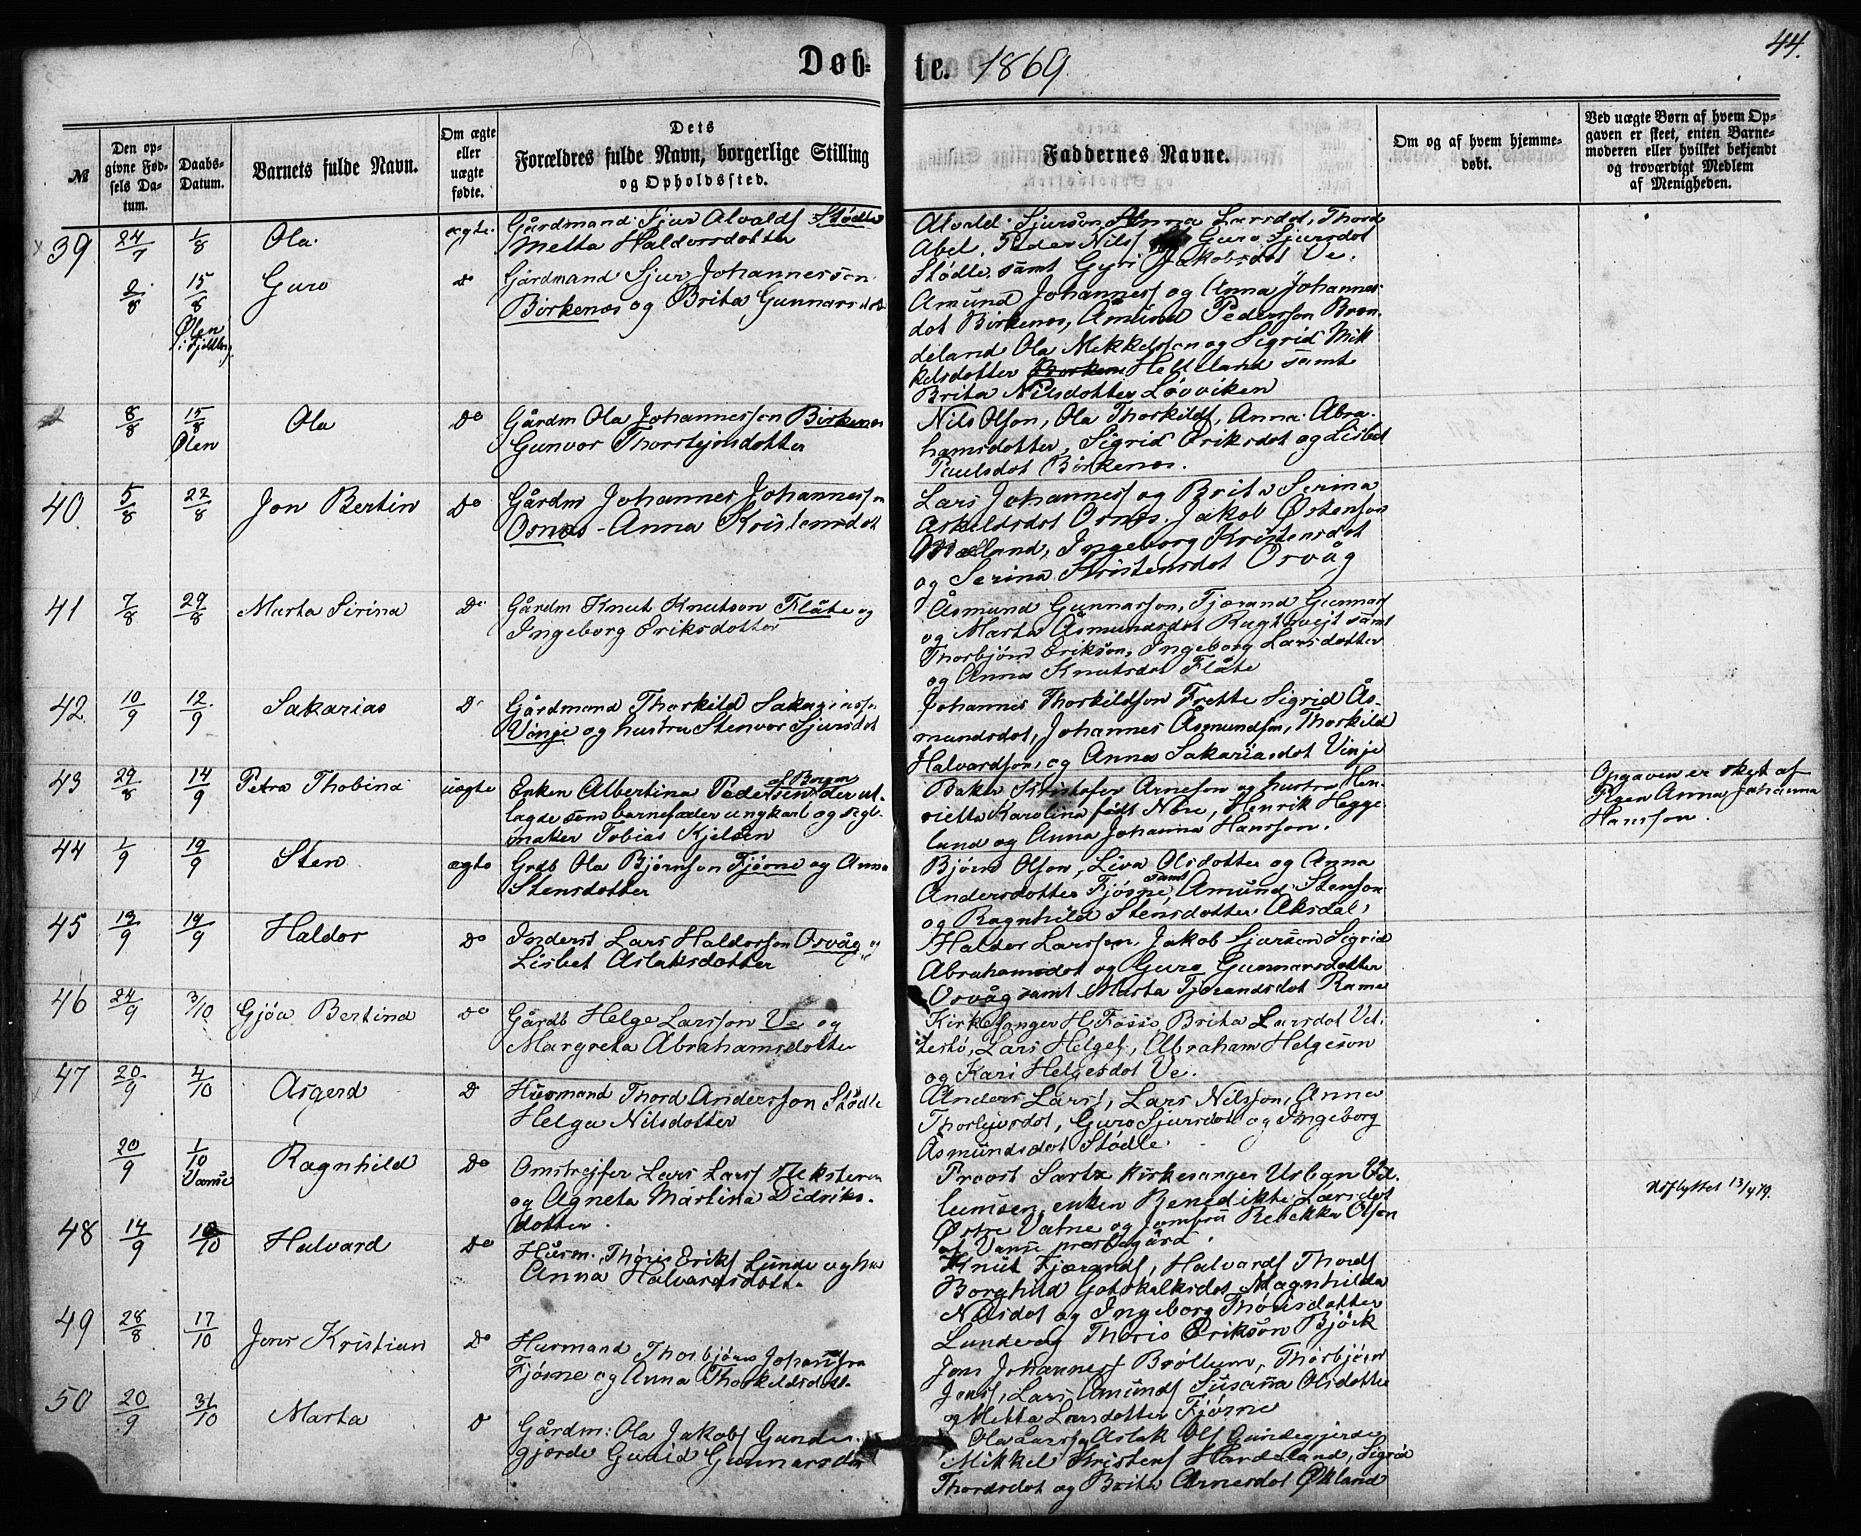 Døb-
te. 1869.
44.
№
Den op-
givne Fød-
sels Da-
tum.
Daabs-
Datum.
Barnets fulde Navn.
Om ægte
eller
uægte
fødte.
Dets
Forældres fulde Navn, borgerlige Stilling
og Opholdssted.
Faddernes Navne.
Om og af hvem hjemme-
døbt.
Ved uægte Børn af hvem Op-
gaven er skeet, enten Barne-
moderen eller hvilket bekjendt
og troværdigt Medlem
af Menigheden.
39 24/7 1/8 Ola. ægte. Gårdmand Sjur Alvaldf Stødle
Metta Haldorsdotter
Alvald Sjurson, Anna Larsdot, Thord
Abel, Peder Nilsf Guro Sjursdot
Stødle samt Gyri Jakobsdot Ve.
2/8 15/8 Ølen i Fjeldberg Guro do Gårdmand Sjur Johannesson
Birkenes og Brita Gunnarsdot
Amund Johannesf og Anna Johannes-
dot Birkenes, Amund Pederson Bran-
deland Ola Mikkelson og Sigrid Mik-
kelsdotter Helleland samt
Brita Nilsdotter Løvviken
8/8 15/8 Ølen Ola Do Gårdm Ola Johannesson Birkenes
Gunvor Thorstejnsdotter
Nils Olson, Ola Thorkildf, Anna Abra-
hamsdotter, Sigrid Eriksdot og Lisbet
Paulsdot Birkenes.
40. 5/8 22/8 Jon Bertin Do Gårdm Johannes Johannesson
Osnes - Anna Kristensdot
Lars Johannesf og Brita Serina
Askildsdot Osnes. Jakob Østenson
Mæland, Ingeborg Kristensdot
og Serina Kristensdot Osvåg
41 7/8 29/8 Marta Sirina Do Gårdm Knut Knutson Flåte og
Ingeborg Eriksdotter
Åsmund Gunnarson, Fjærand Gunnarf
og Marta Åsmundsdot samt
Thorbjørn Erikson, Ingeborg Larsdotter
og Anna Knutsdot Flåte
42. 10/9 12/9 Sakarias Do Gårdmand Thorkild Sakariasson
Vinje og hustru Stenvor Sjursdot
Johannes Thorkildson Frette Sigrid Ås-
mundsdot, Johannes Åsmundson, Thorkild
Halvardson, og Anna Sakariasdot Vinje
43 29/8 14/9 Petra Thobina uægte Enken Albertina Pedersen af Bergen der ut-
lagde som barnefader ungkarl og segl-
maker Tobias Kjelsen
Baker Kristofer Arneson og hustru Hen-
riette Karolina født Nøre, Henrik Hegge-
lund og Anna Johanna Hanson.
Opgaven er skeet af
Pigen Anna Johanna
Hanson.
44 1/9 19/9 Sten ægte Grdb Ola Bjørnson Fjøsne og Anna
Stensdotter
Bjørn Olson, Liva Olsdotter og Anna
Andersdotter Fjøsne, samt Amund Stenson
og Ragnhild Stensdotter Aksdal.
45 13/9 19/9 Haldor Do Inderst Lars Haldorson Osvåg og
Lisbet Aslaksdotter
Haldor Larsson, Jakob Sjurson Sigrid
Abrahamsdot og Guro Gunnarsdotter
Osvåg samt Marta Fjærandsdot Rame
46 24/9 3/10 Gjøa Bertina Do Gårdb Helge Larsson Ve og
Margreta Abrahamsdotter
Kirkesanger H. Fosse, Brita Larsdot Vet-
testø, Lars Helgef, Abraham Helgeson
og Kari Helgesdot Ve.
47 20/9 4/10 Asgerd D Husmand Thord Andersson Stødle
Helga Nilsdotter
Anders Larsf, Lars Nilsson, Anna
Guro Sjursdot og Ingeborg
Åsmundsdot Stødle.
20/9 1/10 Vanse Ragnhild Do Omstrejfer Lars Larsf
og Agneta Martina Didriks-
dotter.
Provst Sartz kirkesanger Urban
enken Benedikte Larsdot
Østre Vatne og Jomfru Rebekka Olsen
af Vanse prestegård.
Udflyttet 13/4 79.
48 14/9 10/10 Halvard Do Husm. Thøris Eriksf Lunde og hus
Anna Halvardsdott.
Knut Fjærandf, Halvardf Thordf
Borghild Gotskalksdot Magnhilda
Nilsdot og Ingeborg Thørisdotter
Lunde og Thøris Erikson Bjørk
49 28/8 17/10 Jons Kristian Do Husmand Thorbjørn Johannesson
Fjøsne og Anna Thorkildsdot.
Jons Johannesf Brøllum, Thorbjørn
Jonsf, Lars Amundf Susanna Olsdotter
og Metta Larsdotter Fjøsne
50 20/9 31/10 Marta D Gårdm: Ola Jakobf Gunde-
gjerde Gurid Gunnarsdot
Ola Larsson Aslak Olsf Gundegjerde
Mikkel Kristenf Hardeland, Sigrid
Thordsdot og Brita Arnesdot Økland